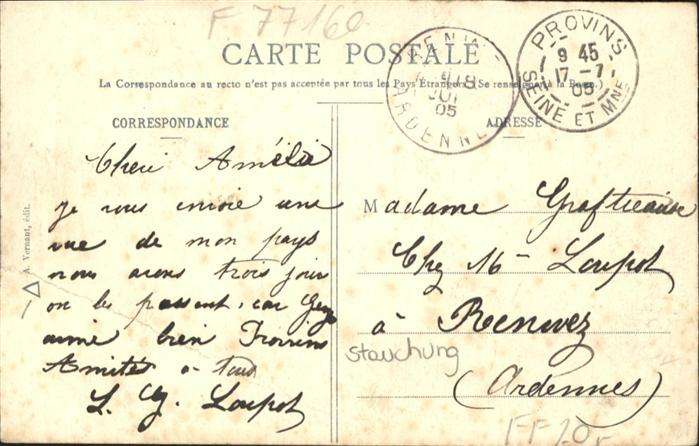 F 77160
CARTE POSTALE
La Correspondance au recto n'est pas acceptée par tous les Pays Étrangers (Se renseigner à la Poste.)
RENWEZ
18
05
ARDENNES
PROVINS
9 45
17 - 7
05
SEINE ET MNE
CORRESPONDANCE
ADRESSE
Cheri Amélie
je vous envoie une
vue de mon pays
nous avons trois jour
on les passent, car
aime bien Provins
Amitiés a tous
L. Loupot
Madame
Chez Mr Loupot
à Renwez
(Ardennes)
stauchung
FF20
A. Vernant, édit.